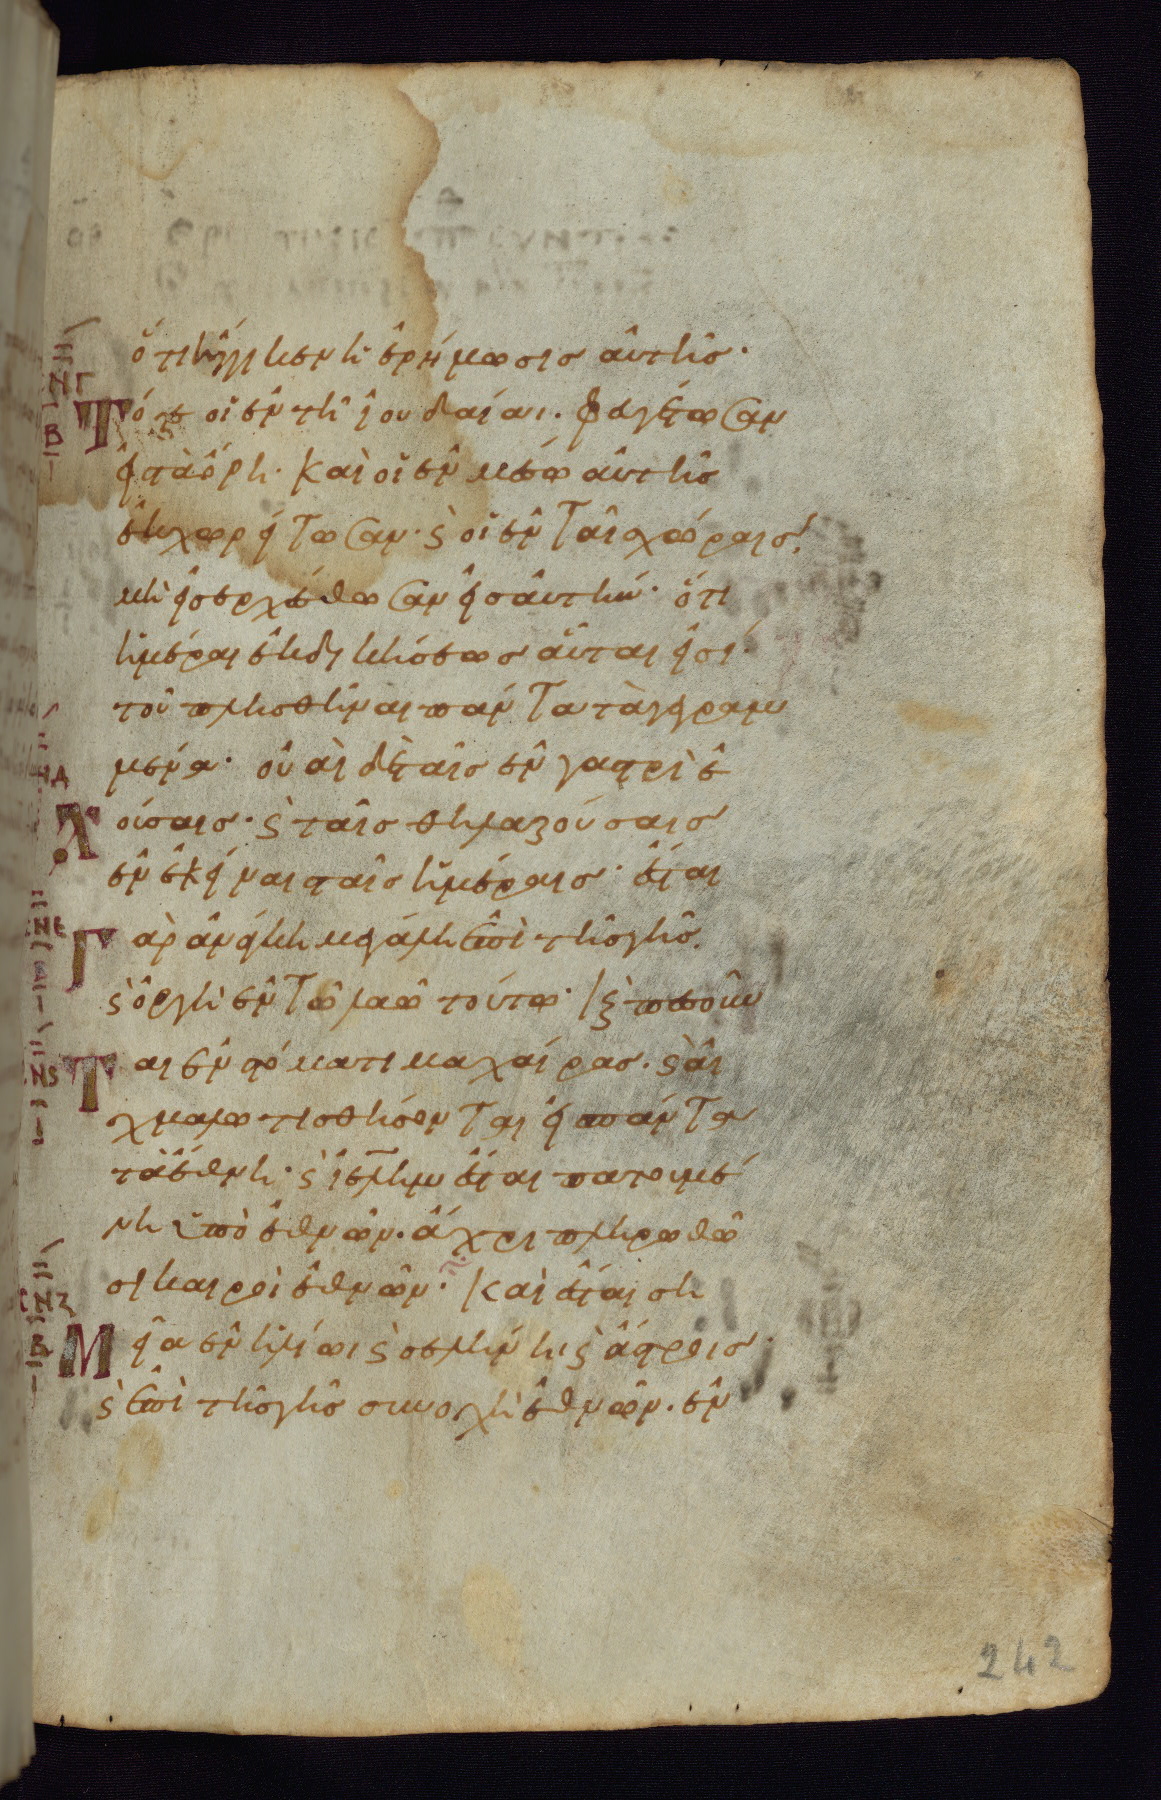 ὅτι ἤγγικεν ἡ ἐρήμωσις αὐτῆς·
ΝΓ
Β
Τότε οἱ ἐν τῆ ἰουδαίαι· φευγέτωσαν
εἰς τὰ ὄρη· Καὶ οἱ ἐν μέσω αὐτῆς
ἐκχωρείτωσαν· ϛ οἱ ἐν ταῖς χώραις,
μὴ εἰσερχέσθωσαν εἰς αὐτήν· ὅτι
ἡμέραι ἐκδικήσεως αὗται εἰσί·
τοῦ πλησθῆναι πάντα τὰ γεγραμ
μένα· οὐαὶ δὲ ταῖς ἐν γαστρὶ ἐ
ΝΔ
χούσαις· ϛ ταῖς θηλαζούσαις
ἐν ἐκείναις ταῖς ἡμέραις· ἔσται
ΝΕ
Γὰρ ἀνάγκη μεγάλη ἐπὶ τῆς γῆς·
ϛ ὀργὴ ἐν τῶ λαῶ τούτω· Καὶ πεσοῦν
ΝϚ
Ται ἐν στόματι μαχαίρας· ϛ αἰ
χμαλωτισθήσονται εἰς πάντα
τὰ ἔθνη· ϛ ἱελημ ἔσται πατουμέ
νη ὑπὸ ἐθνῶν· ἄχρι πληρωθῶ
σι καιροὶ ἐθνῶν· Καὶ ἔσται ση
ΝΖ
Β
Μεῖα ἐν ἡλίωι ϛ σελήνηι ϛ ἄστροις·
ϛ ἐπὶ τῆς γῆς συνοχὴ ἐθνῶν· ἐν
242